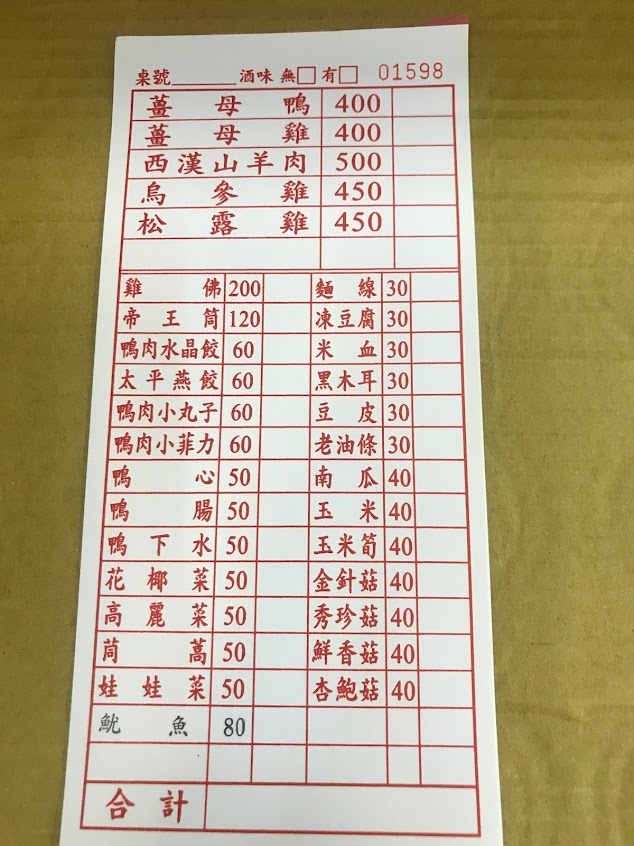 桌號______ 酒味 無□ 有□ 01598
薑母鴨 400
薑母雞 400
西漢山羊肉 500
烏參雞 450
松露雞 450
雞佛 200 麵線 30
帝王筒 120 凍豆腐 30
鴨肉水晶餃 60 米血 30
太平燕餃 60 黑木耳 30
鴨肉小丸子 60 豆皮 30
鴨肉小菲力 60 老油條 30
鴨心 50 南瓜 40
鴨腸 50 玉米 40
鴨下水 50 玉米筍 40
花椰菜 50 金針菇 40
高麗菜 50 秀珍菇 40
茼蒿 50 鮮香菇 40
娃娃菜 50 杏鮑菇 40
魷魚 80
合計